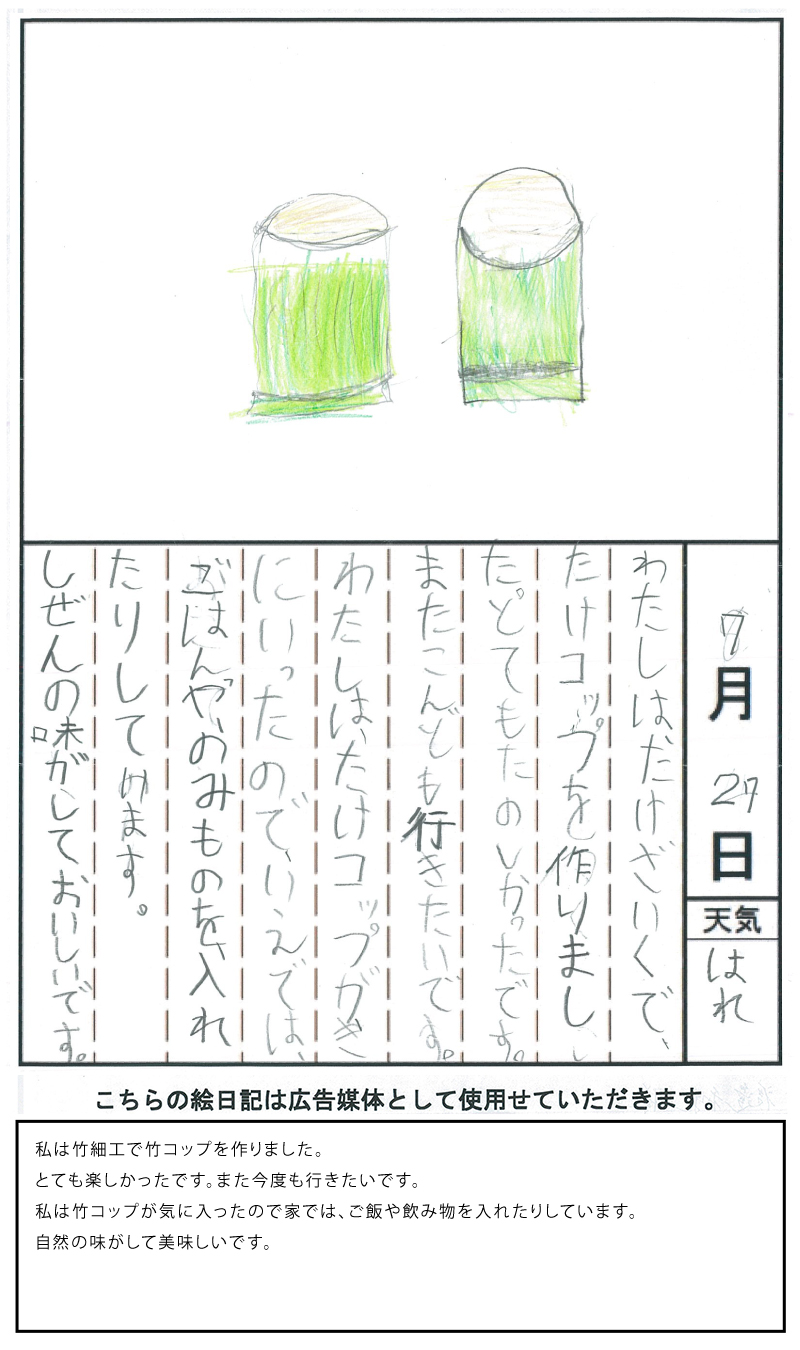 7月27日
天気
はれ
わたしは、だけざいくで、
たけコップを作りまし
たとてもたのしかったです。
またこんども行きたいです。
わたしは、たけコップがき
にいったのでいえでは、
ごはんや、のみものを、入れ
たりしてめます。
しぜんの味がしておいしいです。
こちらの絵日記は広告媒体として使用せていただきます。
私は竹細工で竹コップを作りました。
とても楽しかったです。また今度も行きたいです。
私は竹コップが気に入ったので家では、ご飯や飲み物を入れたりしています。
自然の味がして美味しいです。